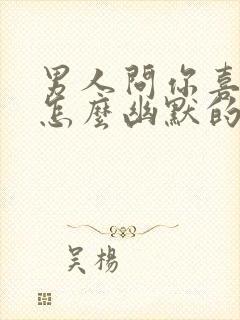 男人問你喜
怎麼幽默的
吴楊